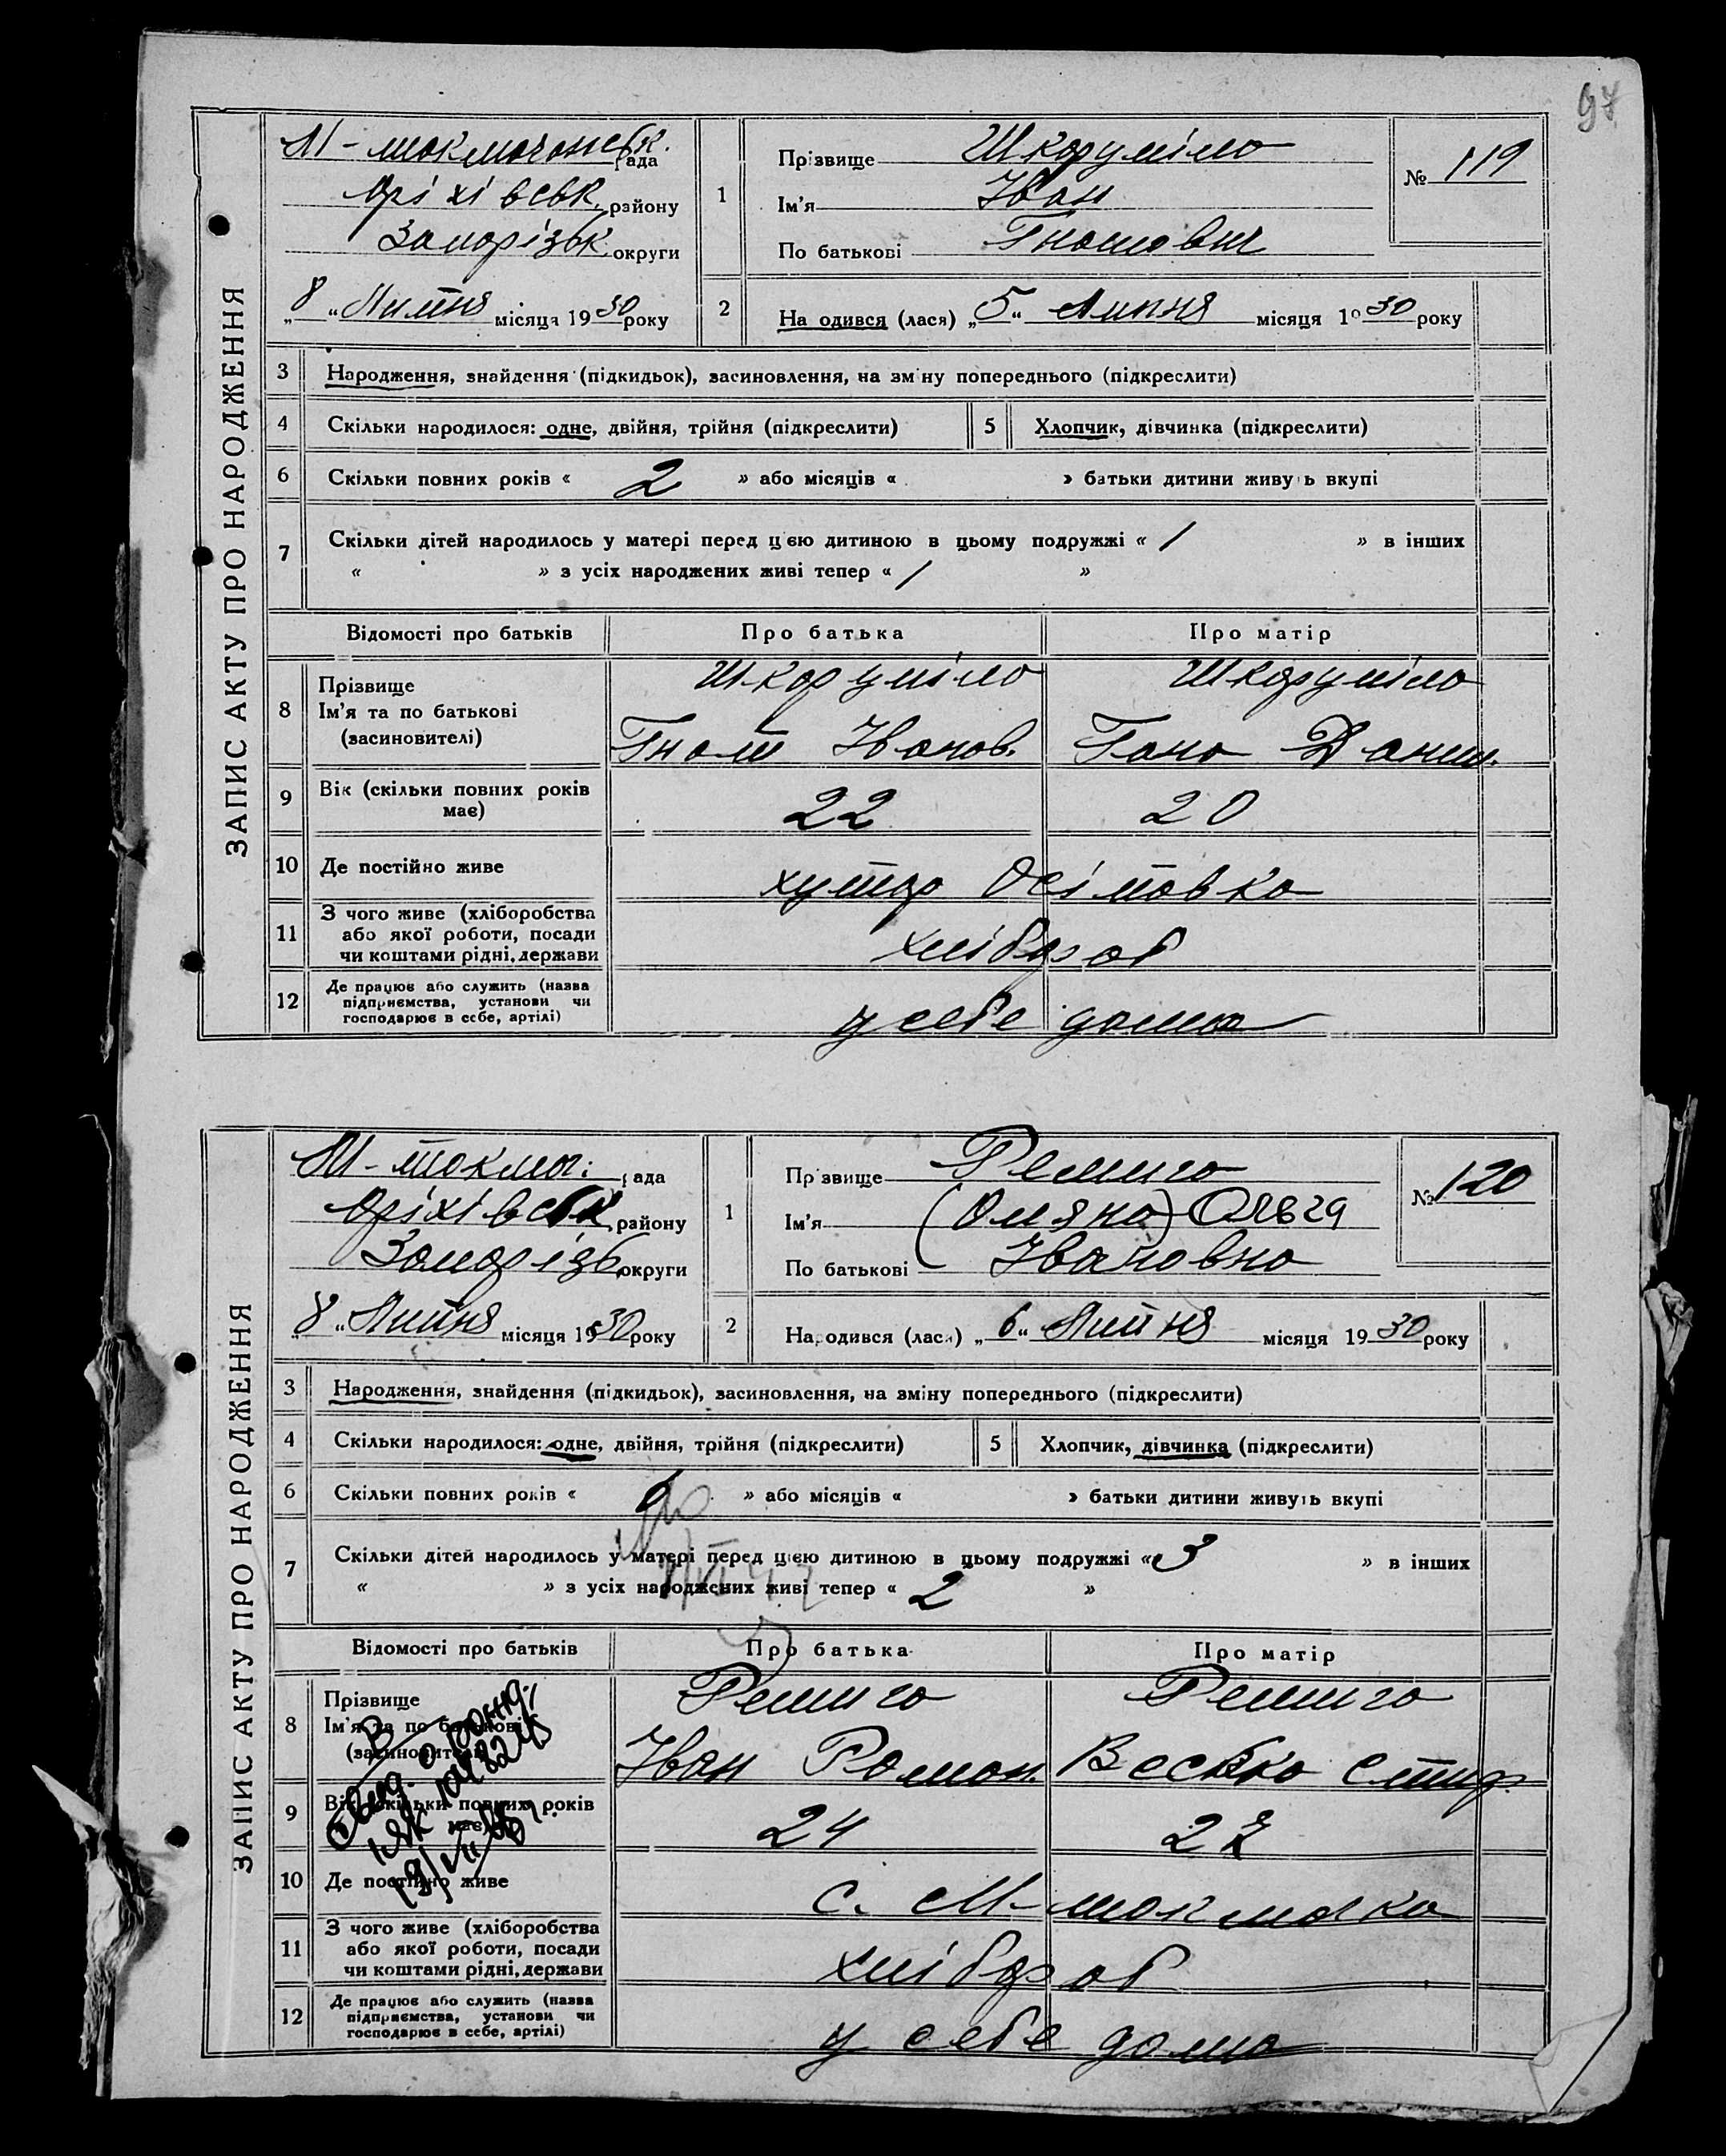 97
ЗАПИС АКТУ ПРО НАРОДЖЕННЯ
М-токмачанськ. рада
Оріхівськ. району
Запорізьк. округи
„8“ Липня місяця 1930 року
1
Прізвище Шкоруміло
Ім'я Іван
По батькові Гнатович
№ 119
2
Народився (лася) „5“ Липня місяця 1930 року
3 Народження, знайдення (підкидьок), засиновлення, на зміну попереднього (підкреслити)
4 Скільки народилося: одне, двійня, трійня (підкреслити)
5 Хлопчик, дівчинка (підкреслити)
6 Скільки повних років « 2 » або місяців « » батьки дитини живуть вкупі
7 Скільки дітей народилось у матері перед цією дитиною в цьому подружжі « 1 » в інших
« » з усіх народжених живі тепер « 1 »
Відомості про батьків Про батька Про матір
8 Прізвище Шкоруміло Шкоруміло
Ім'я та по батькові
(засиновителі) Гнат Іванов. Гана Данил.
9 Вік (скільки повних років
має) 22 20
10 Де постійно живе хутор Осіповка
11 З чого живе (хліборобства
або якої роботи, посади
чи коштами рідні, держави хлібороб
12 Де працює або служить (назва
підприємства, установи чи
господарює в себе, артілі) у себе дома
ЗАПИС АКТУ ПРО НАРОДЖЕННЯ
М-токмач: рада
Оріхівськ району
Запорізь. округи
„8“ Липня місяця 1930 року
1
Прізвище Ремига
Ім'я (Оляна) Ольга
По батькові Івановна
№ 120
2
Народився (лася) „6“ Липня місяця 1930 року
3 Народження, знайдення (підкидьок), засиновлення, на зміну попереднього (підкреслити)
4 Скільки народилося: одне, двійня, трійня (підкреслити)
5 Хлопчик, дівчинка (підкреслити)
6 Скільки повних років « » або місяців « » батьки дитини живуть вкупі
7 Скільки дітей народилось у матері перед цією дитиною в цьому подружжі « 3 » в інших
« » з усіх народжених живі тепер « 2 »
Відомості про батьків Про батька Про матір
8 Прізвище Ремига Ремига
Ім'я та по батькові
(засиновителі) Іван Роман.
9 Вік (скільки повних років
має) 24
10 Де постійно живе с. М-токмачка
11 З чого живе (хліборобства
або якої роботи, посади
чи коштами рідні, держави хлібороб
12 Де працює або служить (назва
підприємства, установи чи
господарює в себе, артілі) у себе дома